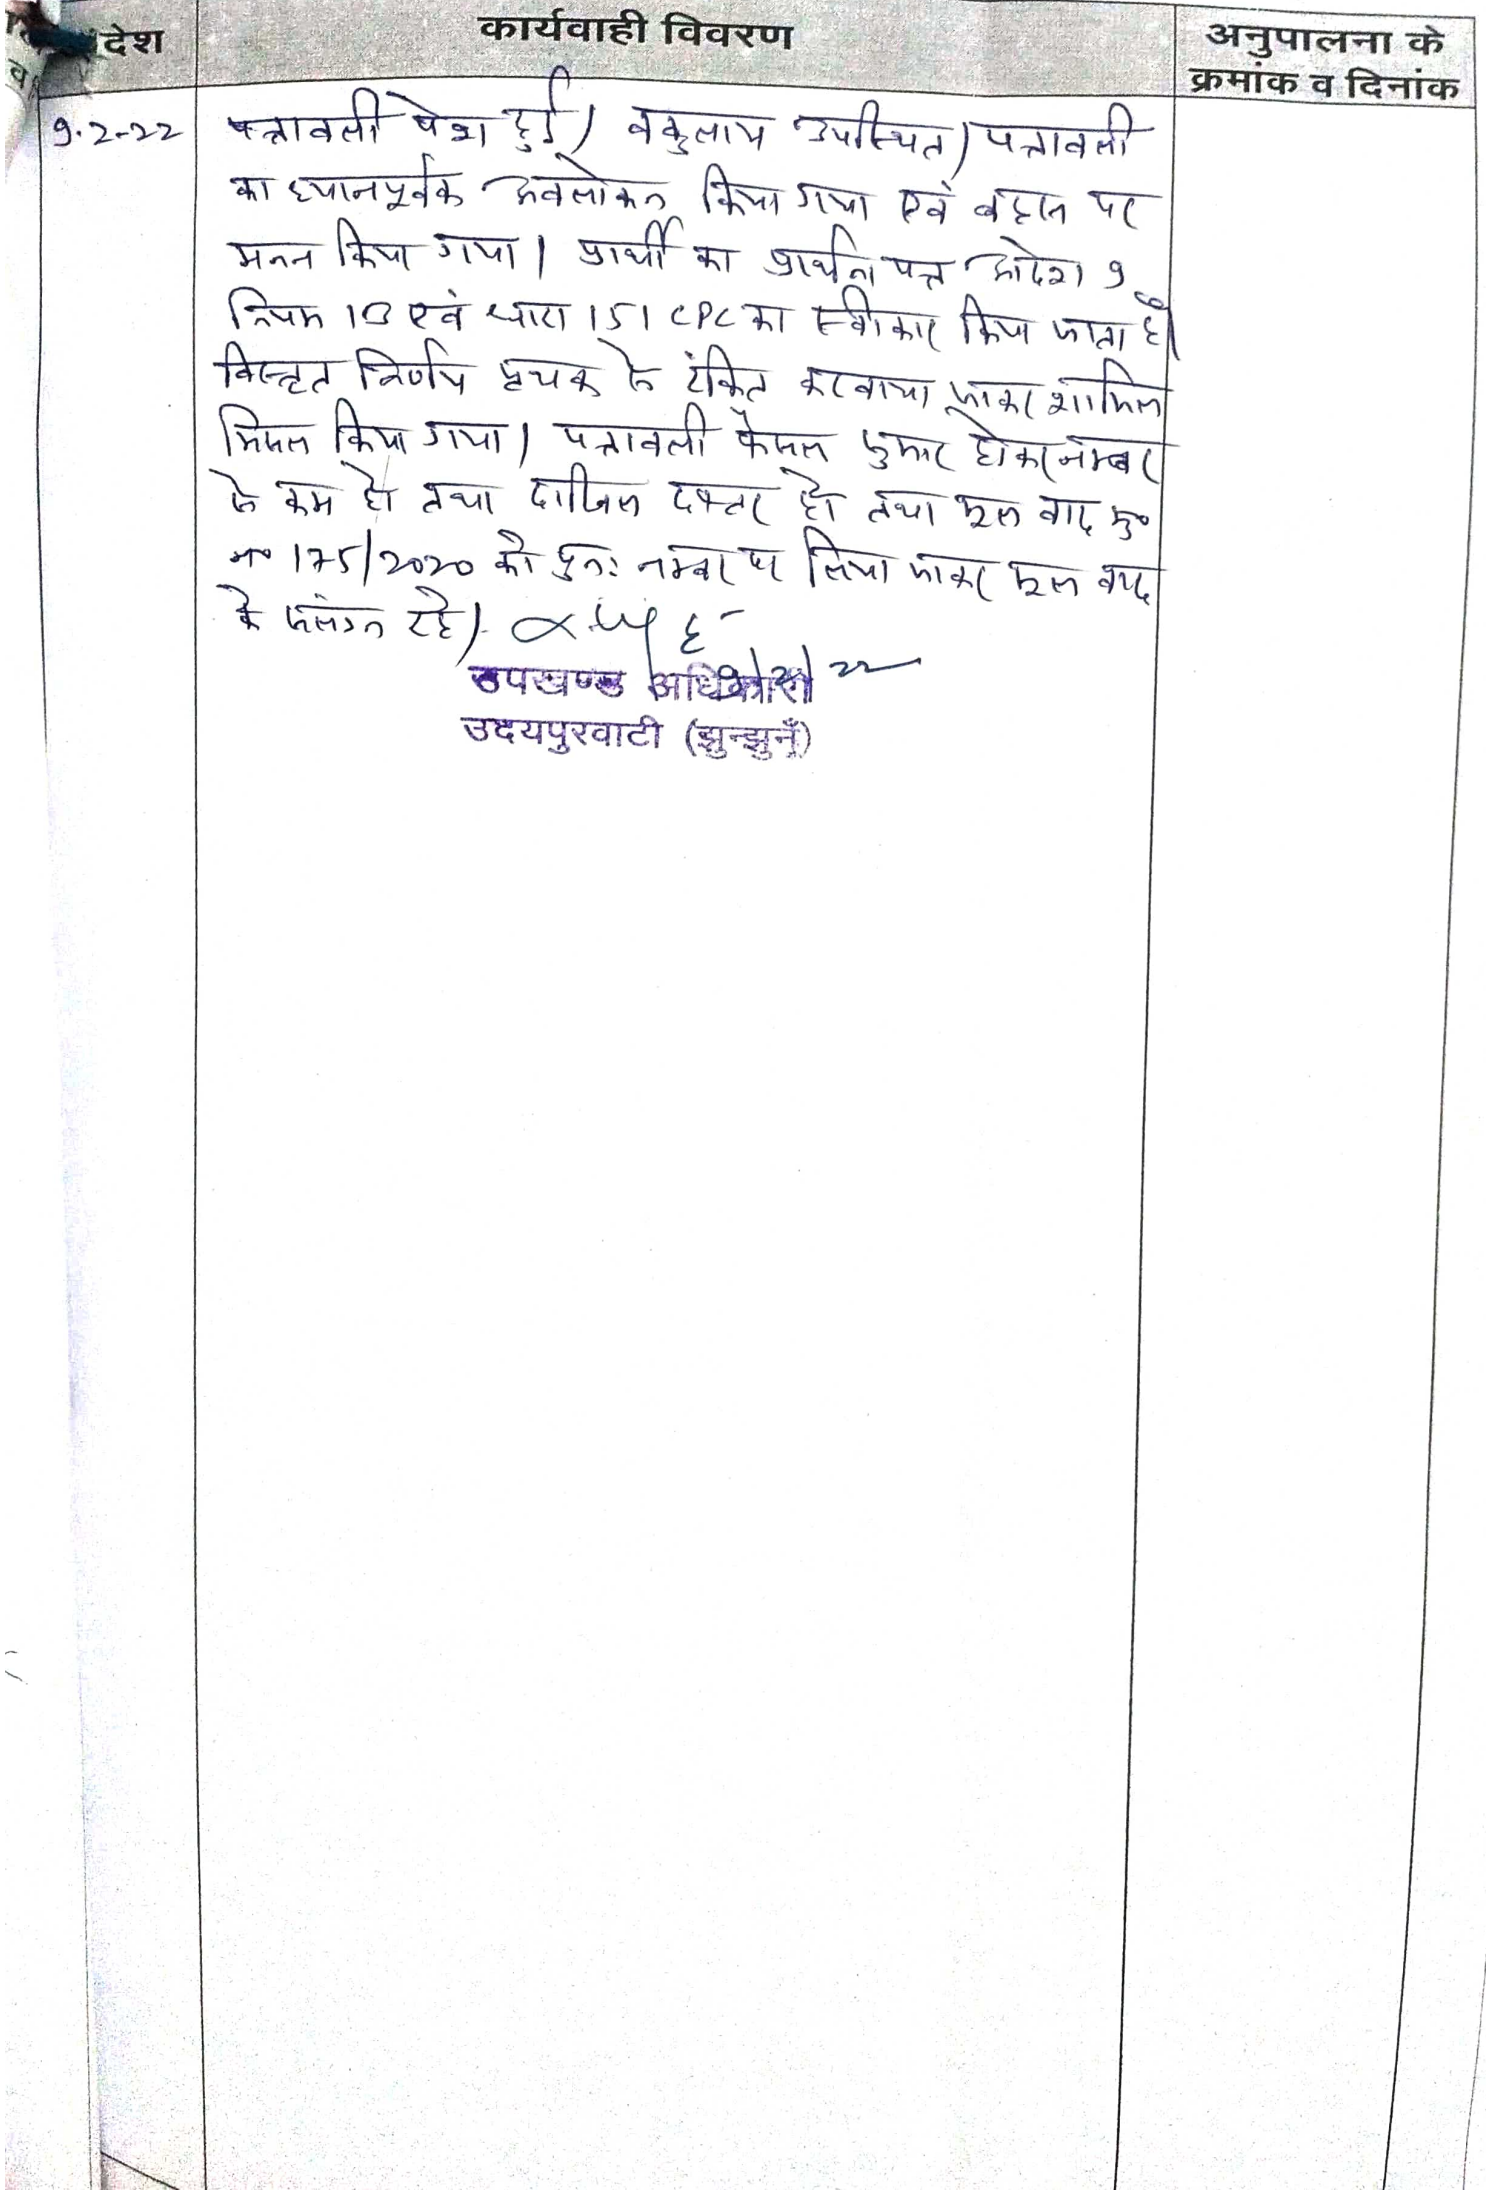 देश
कार्यवाही विवरण
अनुपालना के
क्रमांक व दिनांक
9.2-22
पत्रावली पेश हुई। वकुलाय उपस्थित। पत्रावली
का ध्यानपूर्वक अवलोकन किया गया एवं बहस पर
मनन किया गया। प्रार्थी का प्रार्थना पत्र आदेश 9
नियम 13 एवं धारा 151 CPC का स्वीकार किया जाता है।
विस्तृत निर्णय पृथक से टंकित करवाया जाकर शामिल
मिसल किया गया। पत्रावली फैसल शुमार होकर नम्बर
से कम हो तथा दाखिल दफ्तर हो तथा मूल वाद मु०
न० 175/2020 को पुनः नम्बर पर लिया जाकर मूल वाद
के संलग्न रहे।
उपखण्ड अधिकारी
उदयपुरवाटी (झुन्झुनूँ)